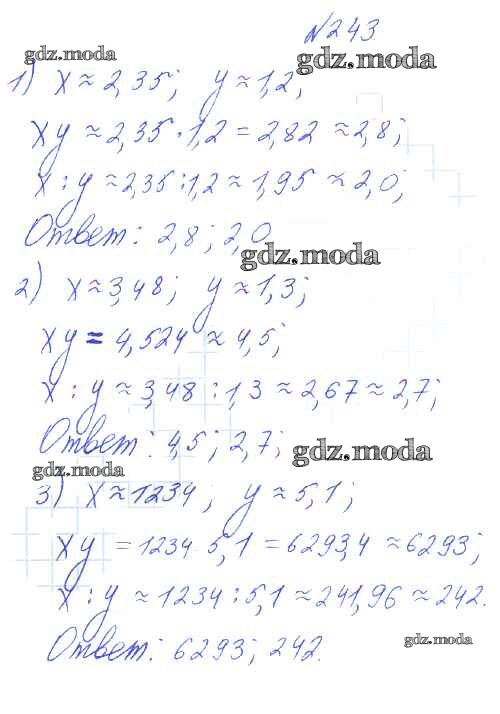 №243.
gdz.moda
gdz.moda
1) x ≈ 2,35; y ≈ 1,2;
xy ≈ 2,35 · 1,2 = 2,82 ≈ 2,8;
x : y ≈ 2,35 : 1,2 ≈ 1,95 ≈ 2,0;
Ответ: 2,8; 2,0
gdz.moda
2) x ≈ 3,48; y ≈ 1,3;
xy = 4,524 ≈ 4,5;
x : y ≈ 3,48 : 1,3 ≈ 2,67 ≈ 2,7;
Ответ: 4,5; 2,7;
gdz.moda
gdz.moda
3) x ≈ 1234; y ≈ 5,1;
xy = 1234 · 5,1 = 6293,4 ≈ 6293;
x : y ≈ 1234 : 5,1 ≈ 241,96 ≈ 242.
Ответ: 6293; 242.
gdz.moda